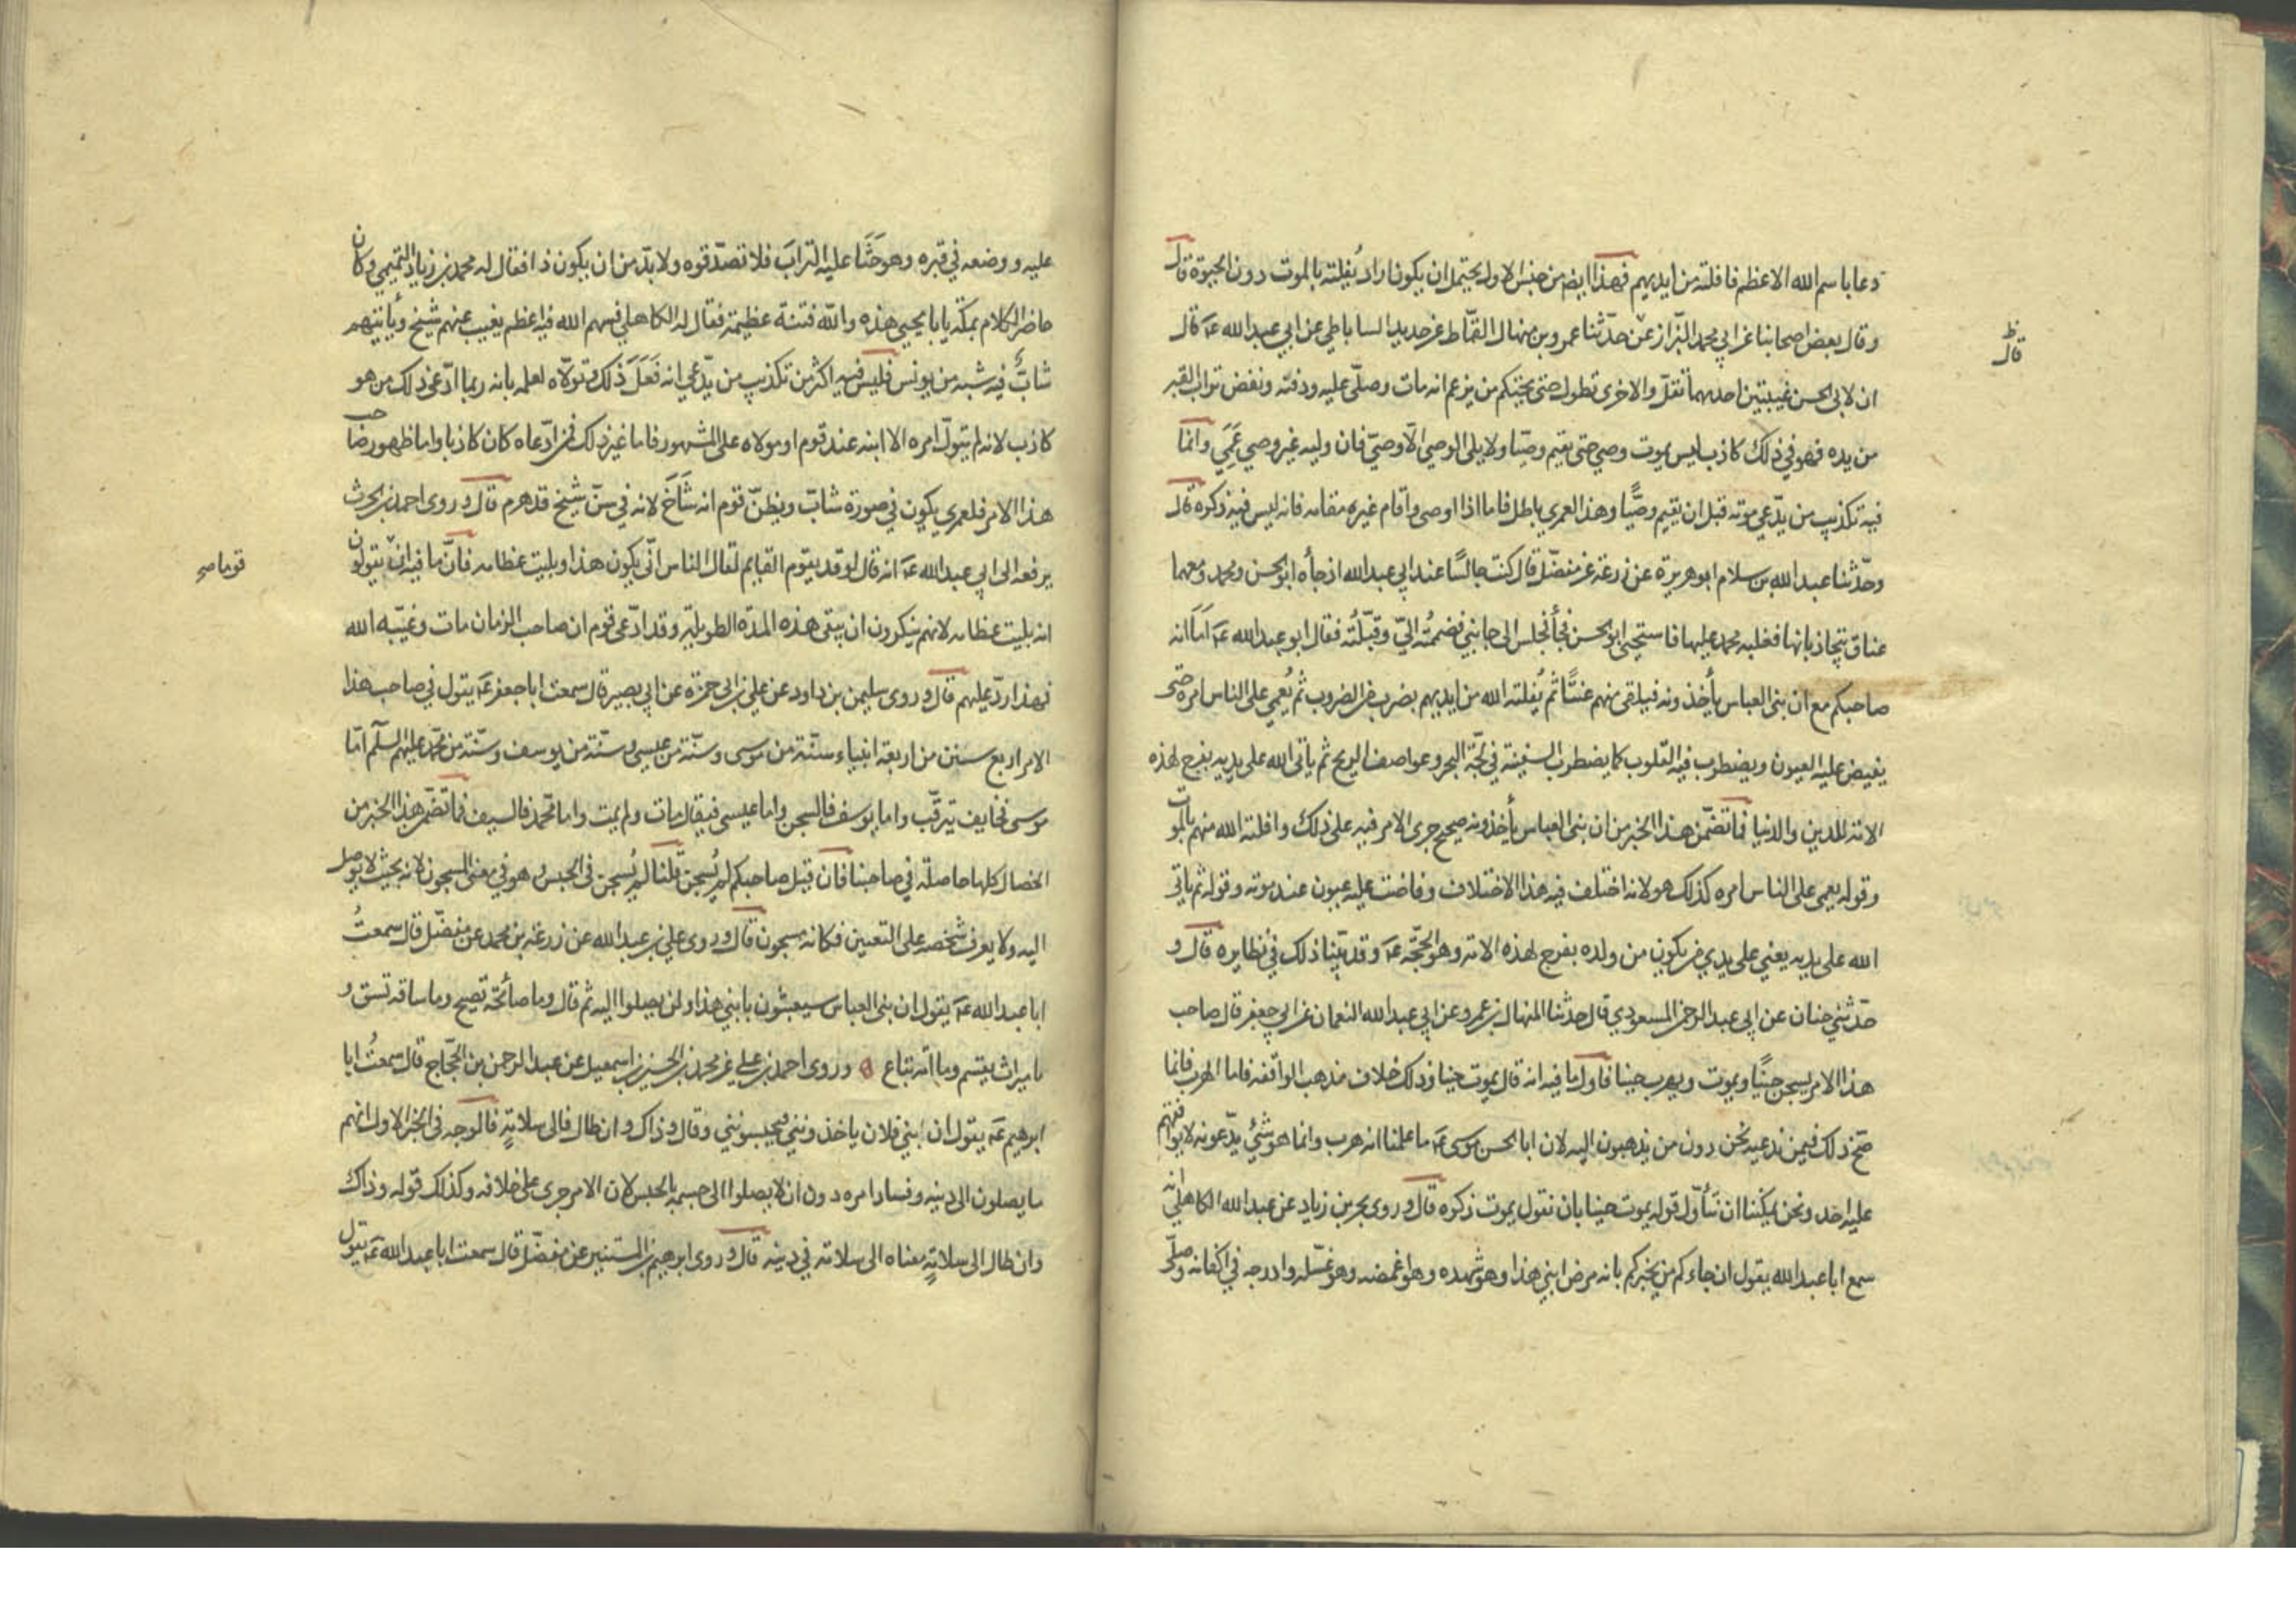 دعا باسم الله الاعظم فافلته من ايديهم فهذا ايضا من جنس الاول يحتمل ان يكون اراد يُفلته بالموت دون الحيوة قال
وقال بعض اصحابنا عن ابي محمد البزاز عن حدّثنا عمرو بن منهال القمّاط عن حديد الساباطي عن ابي عبد الله عـ قال
ظ
قال
ان لابي الحسن غيبتين احدهما تقلّ والاخرى تطول حتى يجيئكم من يزعم انه مات وصلّى عليه ودفنه ونفض تراب القبر
من يده فهو في ذلك كاذب ليس يموت وصي حتى يقيم وصيّا ولا يلى الوصي الّا وصيّ فان وليه غير وصي عَمِيَ وانما
فيه تكذيب من يدّعي موته قبل ان يقيم وصيًّا وهذا لعمري باطل فاما اذا اوصى واقام غيره مقامه فانه ليس فيه ذكره قال
وحدّثنا عبد الله بن سلام ابو هريرة عن زرعة عن مفضّل قال كنت جالسًا عند ابي عبد الله اذ جأه ابو الحسن ومحمد ومعهما
عناق يتجاذبانها فغلبه محمد عليها فاستحيى ابو الحسن فجأ فجلس الى جانبي فضممتُه اليّ وقبّلتُه فقال ابو عبد الله عـ اَمَا انه
صاحبكم مع ان بنى العباس يأخذونه فيلقى منهم عنتًا ثم يُفلته الله من ايديهم بضرب من الضروب ثم يُعمي على الناس امره حتى
يفيض عليه العيون ويضطرب فيه القلوب كما يضطرب السفينة في لجّة البحر وعواصف الريح ثم ياتى الله على يديه بفرج لهذه
الامة للدين والدنيا فما تضمّن هذا الخبر من ان بنى العباس يأخذونه صحيح جرى الامر فيه على ذلك وافلته الله منهم بالموت
وقوله يعمى على الناس امره كذلك هو لانه اختلف فيه هذا الاختلاف وفاضت عليه عيون عند موته وقوله ثم ياتي
الله على يديه يعني على يدي من يكون من ولده بفرج لهذه الامة وهو الحجّة عـ وقد بيّنا ذلك في نظايره قال و
حدّثني حنان عن ابي عبد الرحمن المسعودي قال حدثنا المنهال بن عمرو عن ابي عبد الله النعمان عن ابي جعفر قال صاحب
هذا الامر يسجن حينًا ويموت ويهرب حينا فاول ما فيه انه قال يموت حينا وذلك خلاف مذهب الواقفه فاما الهرب فانما
صحّ ذلك فيمن ندعيه نحن دون من يذهبون اليه لان ابا الحسن موسى عـ ما علمنا انه هرب وانما هو شئ يدّعونه لا يوافقهم
عليه احد ونحن يمكننا ان نتأوّل قوله يموت حينا بان نقول يموت ذكره قال وروى بحر بن زياد عن عبد الله الكاهلي انه
سمع ابا عبد الله يقول ان جاءكم من يخبركم بانه مرض ابني هذا وهو شهده وهو اغمضه وهو غسّله وادرجه في اكفانه وصلّى
عليه ووضعه في قبره وهو حَثَا عليه الترابَ فلا تصدّقوه ولا بدّ من ان يكون ذا فقال له محمد بن زياد التميمي وكان
حاضر الكلام بمكّة يا با يحيى هذه والله فتنة عظيمة فقال له الكاهلي فسهم الله فيه اعظم يغيب عنهم شيخ ويأتيهم
شابٌّ فيه شبه من يونس فليس فيه اكثر من تكذيب من يدّعي انه فَعَلَ ذلك وتولّاه لعلمه بانه ربما ادّعى ذلك من هو
كاذب لانه لم يتولّ امره الا ابنه عند قوم او مولاه على المشهور فاما غير ذلك فمن ادّعاه كان كاذبا واما ظهور صاحب
هذا الامر فلعمري يكون في صورة شابّ ويظنّ قوم انه شَاخَ لانه في سنّ شيخ قد هرم قال وروى احمد بن الحرث
يرفعه الى ابي عبد الله عـ انه قال لو قد يقوم القايم لقال الناس انّى يكون هذا وبليت عظامه فانّ ما فيه انّ يقولون
قوما صح
انه بليت عظامه لانهم ينكرون ان يبقى هذه المدّة الطويلة وقد ادّعى قوم ان صاحب الزمان مات وغيّبه الله
فهذا ردّ عليهم قال وروى سليمن بن داود عن علي بن ابي حمزة عن ابي بصير قال سمعت ابا جعفر عـ يقول في صاحب هذا
الامر اربع سنن من اربعة انبياء سنّة من موسى وسنّة من عيسى وسنّة من يوسف وسنّة من محمّد عليهم السلم امّا
موسى فخايف يترقّب واما يوسف فالسجن واما عيسى فيقال مات ولم يمت واما محمّد فالسيف فما تضمّن هذا الخبر من
الخصال كلها حاصلة في صاحبنا فان قيل صاحبكم لم يُسجن قلنا لم يُسجن في الحبس وهو في معنى المسجون لانه بحيث لا يوصل
اليه ولا يعرف شخصه على التعيين فكانه مسجون قال وروى علي بن عبد الله عن زرعة بن محمد عن مفضّل قال سمعتُ
ابا عبد الله عـ يقول ان بنى العباس سيعبثون بابني هذا ولن يصلوا اليه ثم قال وما صائحة تصيح وما ساقة تسق و
ما ميراث يقسم وما امة تباع ۞ وروى احمد بن علي عن محمد بن الحسين بن اسمعيل عن عبد الرحمن بن الحجّاج قال سمعتُ ابا
ابرهيم عـ يقول ان بني فلان ياخذونني ويحبسونني وقال وذاك وان طال فالى سلامةٍ فالوجه في الخبر الاول انهم
ما يصلون الى دينه وفساد امره دون ان لا يصلوا الى جسمه بالحبس لان الامر جرى على خلافه وكذلك قوله وذاك
وان طال الى سلامةٍ معناه الى سلامة في دينه قال وروى ابرهيم بن المستنير عن مفضّل قال سمعت ابا عبد الله عـ يقول